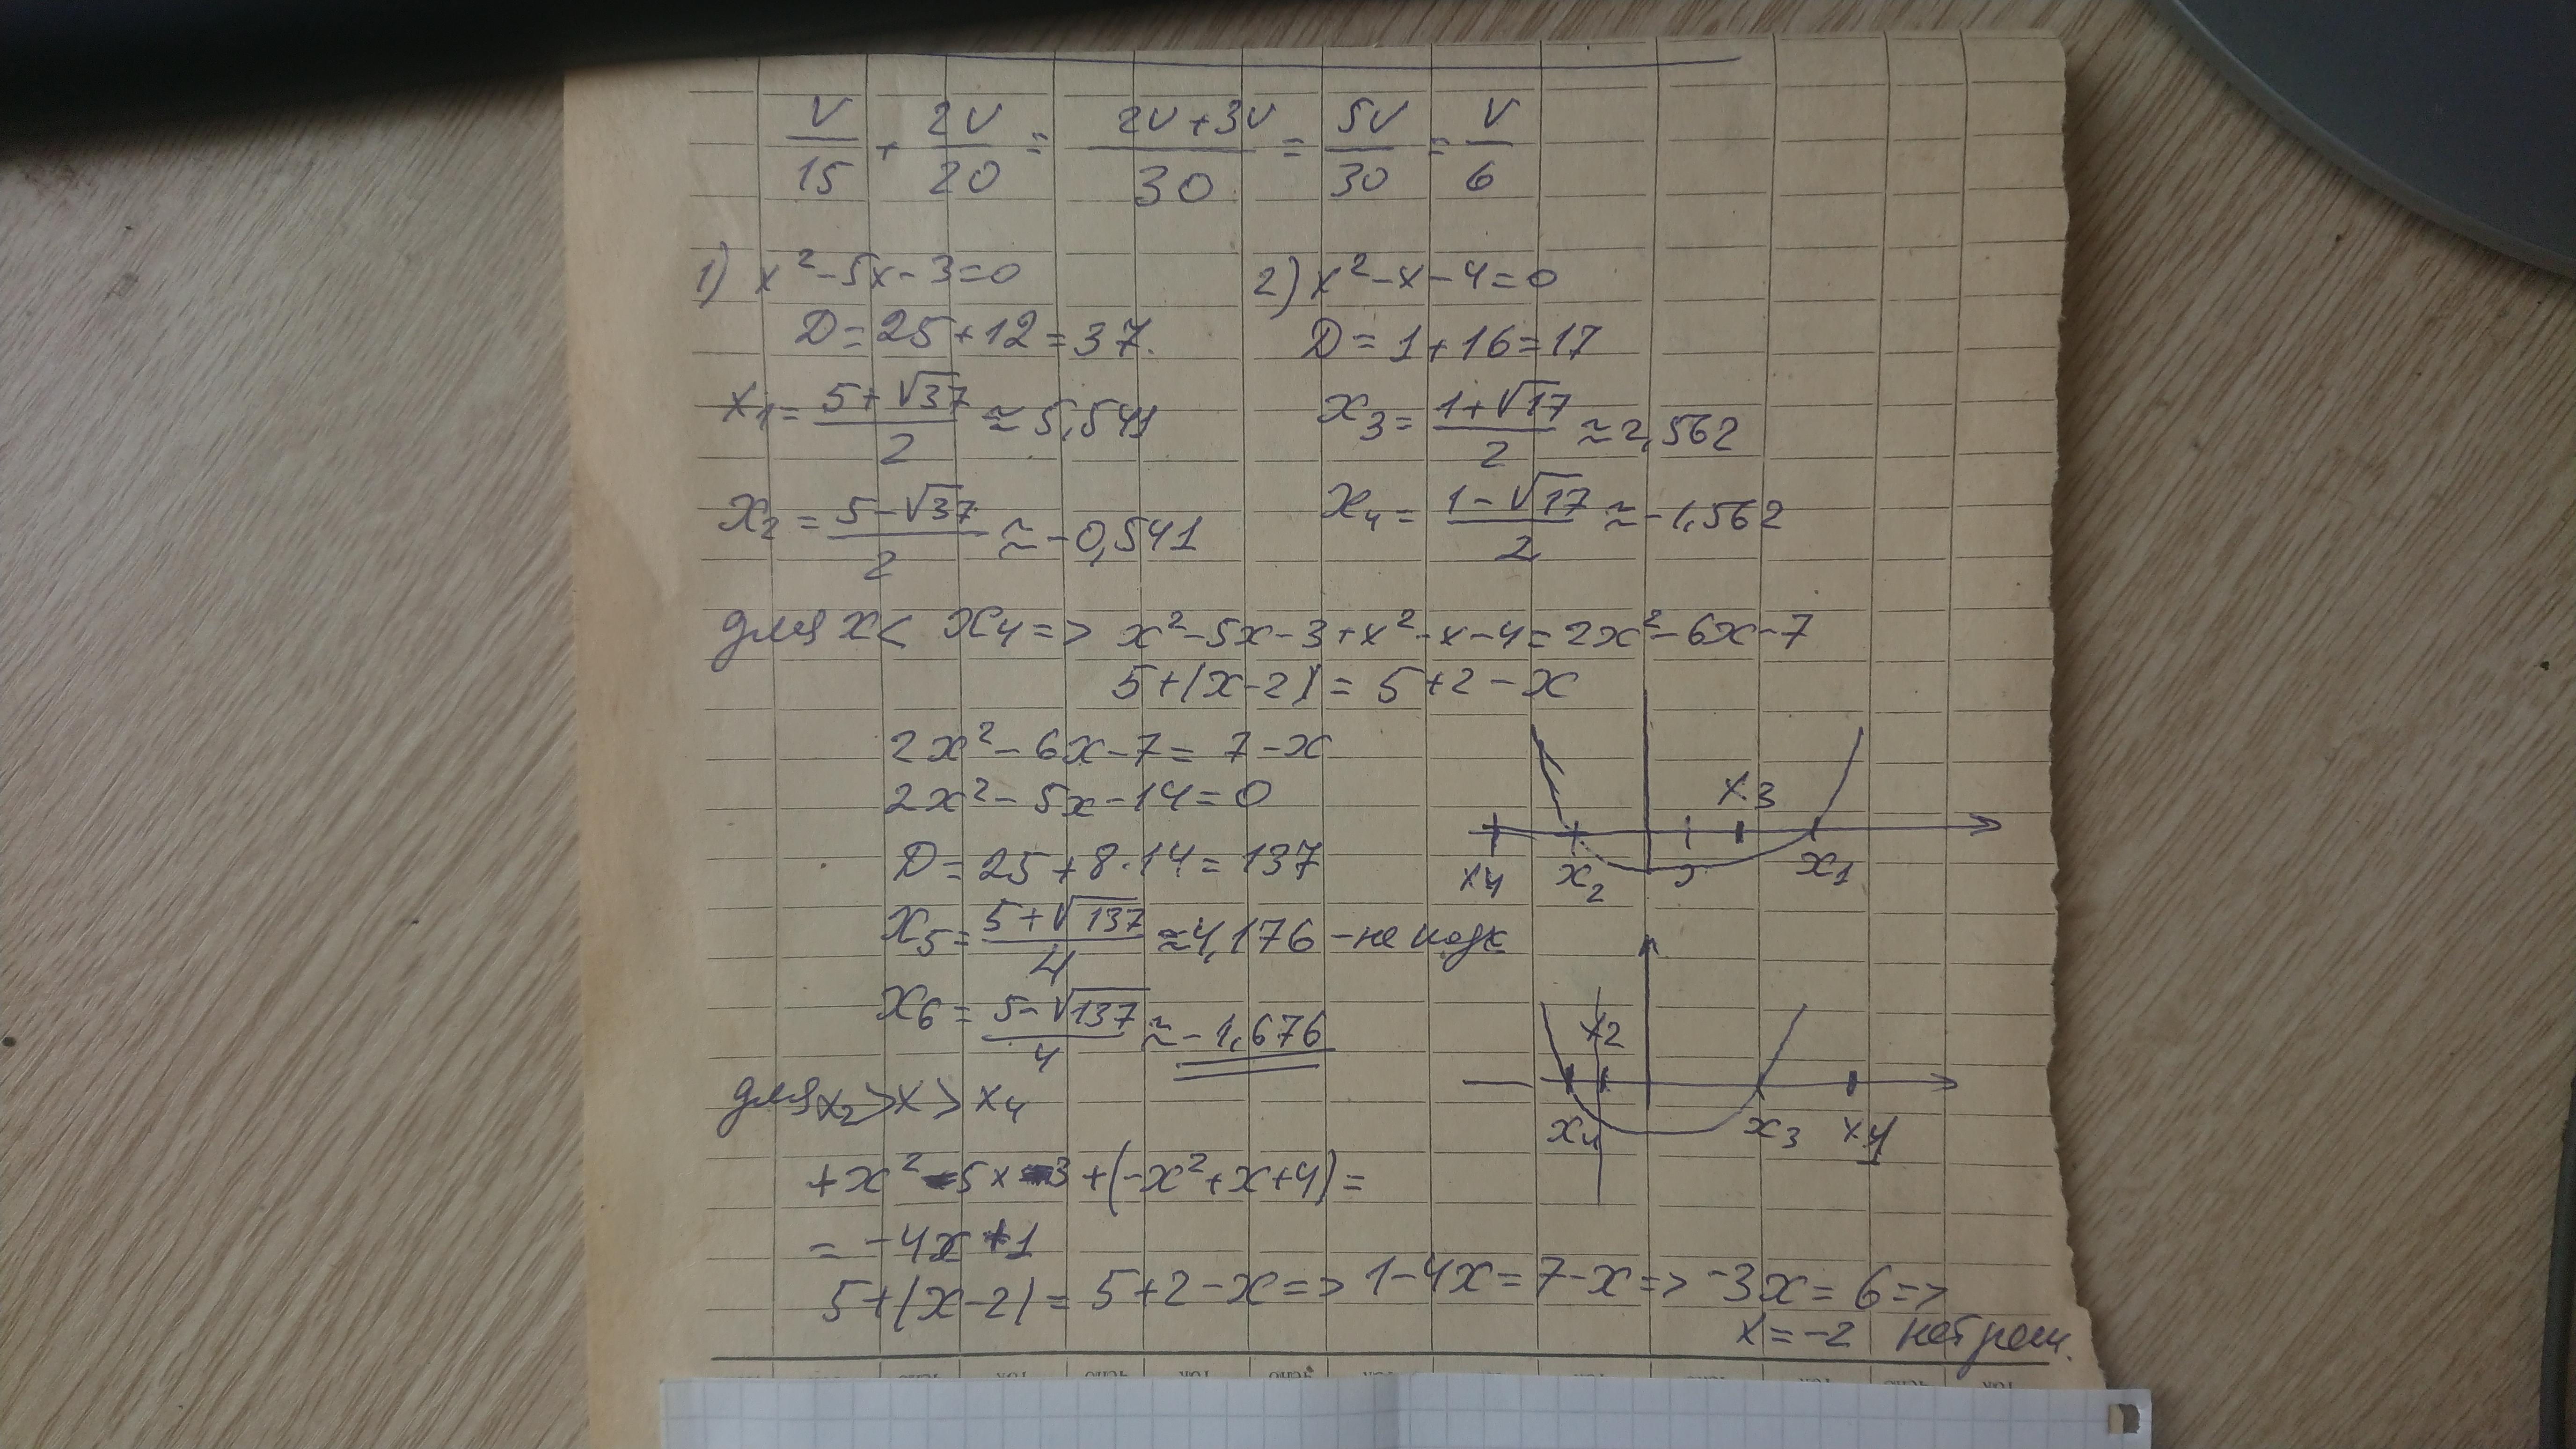 V/15 + 2V/20 = (2V+3V)/30 = 5V/30 = V/6
1) x² - 5x - 3 = 0
D = 25 + 12 = 37.
x₁ = (5+√37)/2 ≈ 5,541
x₂ = (5-√37)/2 ≈ -0,541
2) x² - x - 4 = 0
D = 1 + 16 = 17
x₃ = (1+√17)/2 ≈ 2,562
x₄ = (1-√17)/2 ≈ -1,562
для x < x₄ => x² - 5x - 3 + x² - x - 4 = 2x² - 6x - 7
5 + |x-2| = 5 + 2 - x
2x² - 6x - 7 = 7 - x
2x² - 5x - 14 = 0
D = 25 + 8·14 = 137
x₅ = (5+√137)/4 ≈ 4,176 - не подх
x₆ = (5-√137)/4 ≈ -1,676
x₃
x₄ x₂ x₁
x₂
x₄ x₃ x₁
для x₂ > x > x₄
+x² - 5x - 3 + (-x² + x + 4) =
= -4x + 1
5 + |x-2| = 5 + 2 - x => 1 - 4x = 7 - x => -3x = 6 =>
x = -2 нет реш.